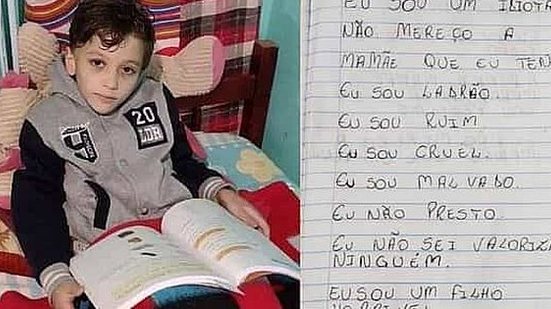 20
LDR
EU SOU UM IDIOTA
NÃO MEREÇO A
MAMÃE QUE EU
EU SOU LADRÃO.
EU SOU RUIM
EU SOU CRUEL.
EU SOU MALVADO.
EU NÃO PRESTO
EU NÃO SEI
NINGUÉM.
EU SOU UM FILHO